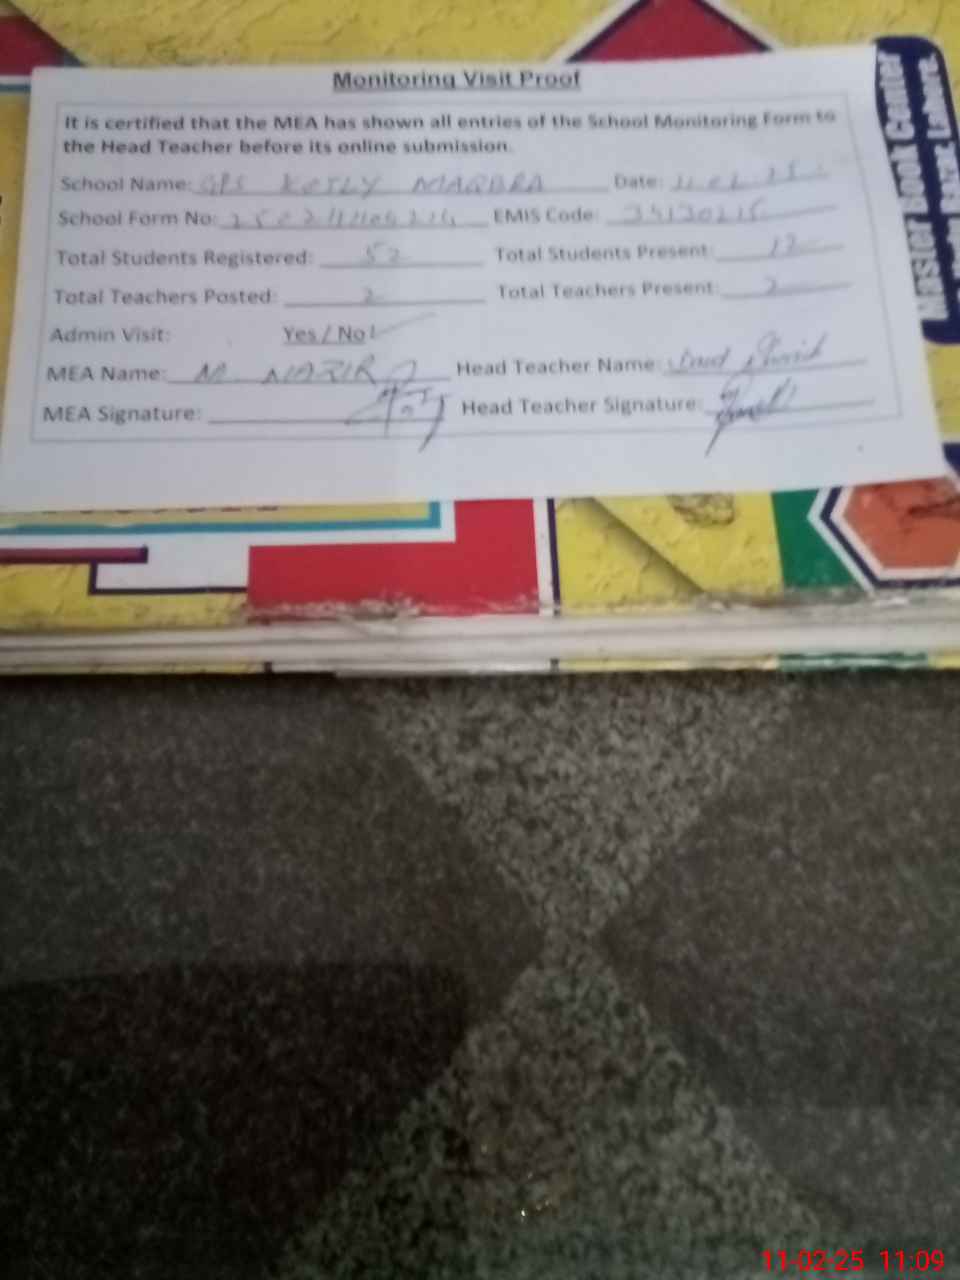 Monitoring Visit Proof
It is certified that the MEA has shown all entries of the School Monitoring Form to
the Head Teacher before its online submission.
School Name: GPS KOTLY MARDRA Date: 11.02.25
School Form No: EMIS Code:
Total Students Registered: 52 Total Students Present: 12
Total Teachers Posted: 2 Total Teachers Present: 2
Admin Visit: Yes / No
MEA Name: M. NAZIR Head Teacher Name:
MEA Signature: Head Teacher Signature:
Master Book Center
11-02-25 11:09